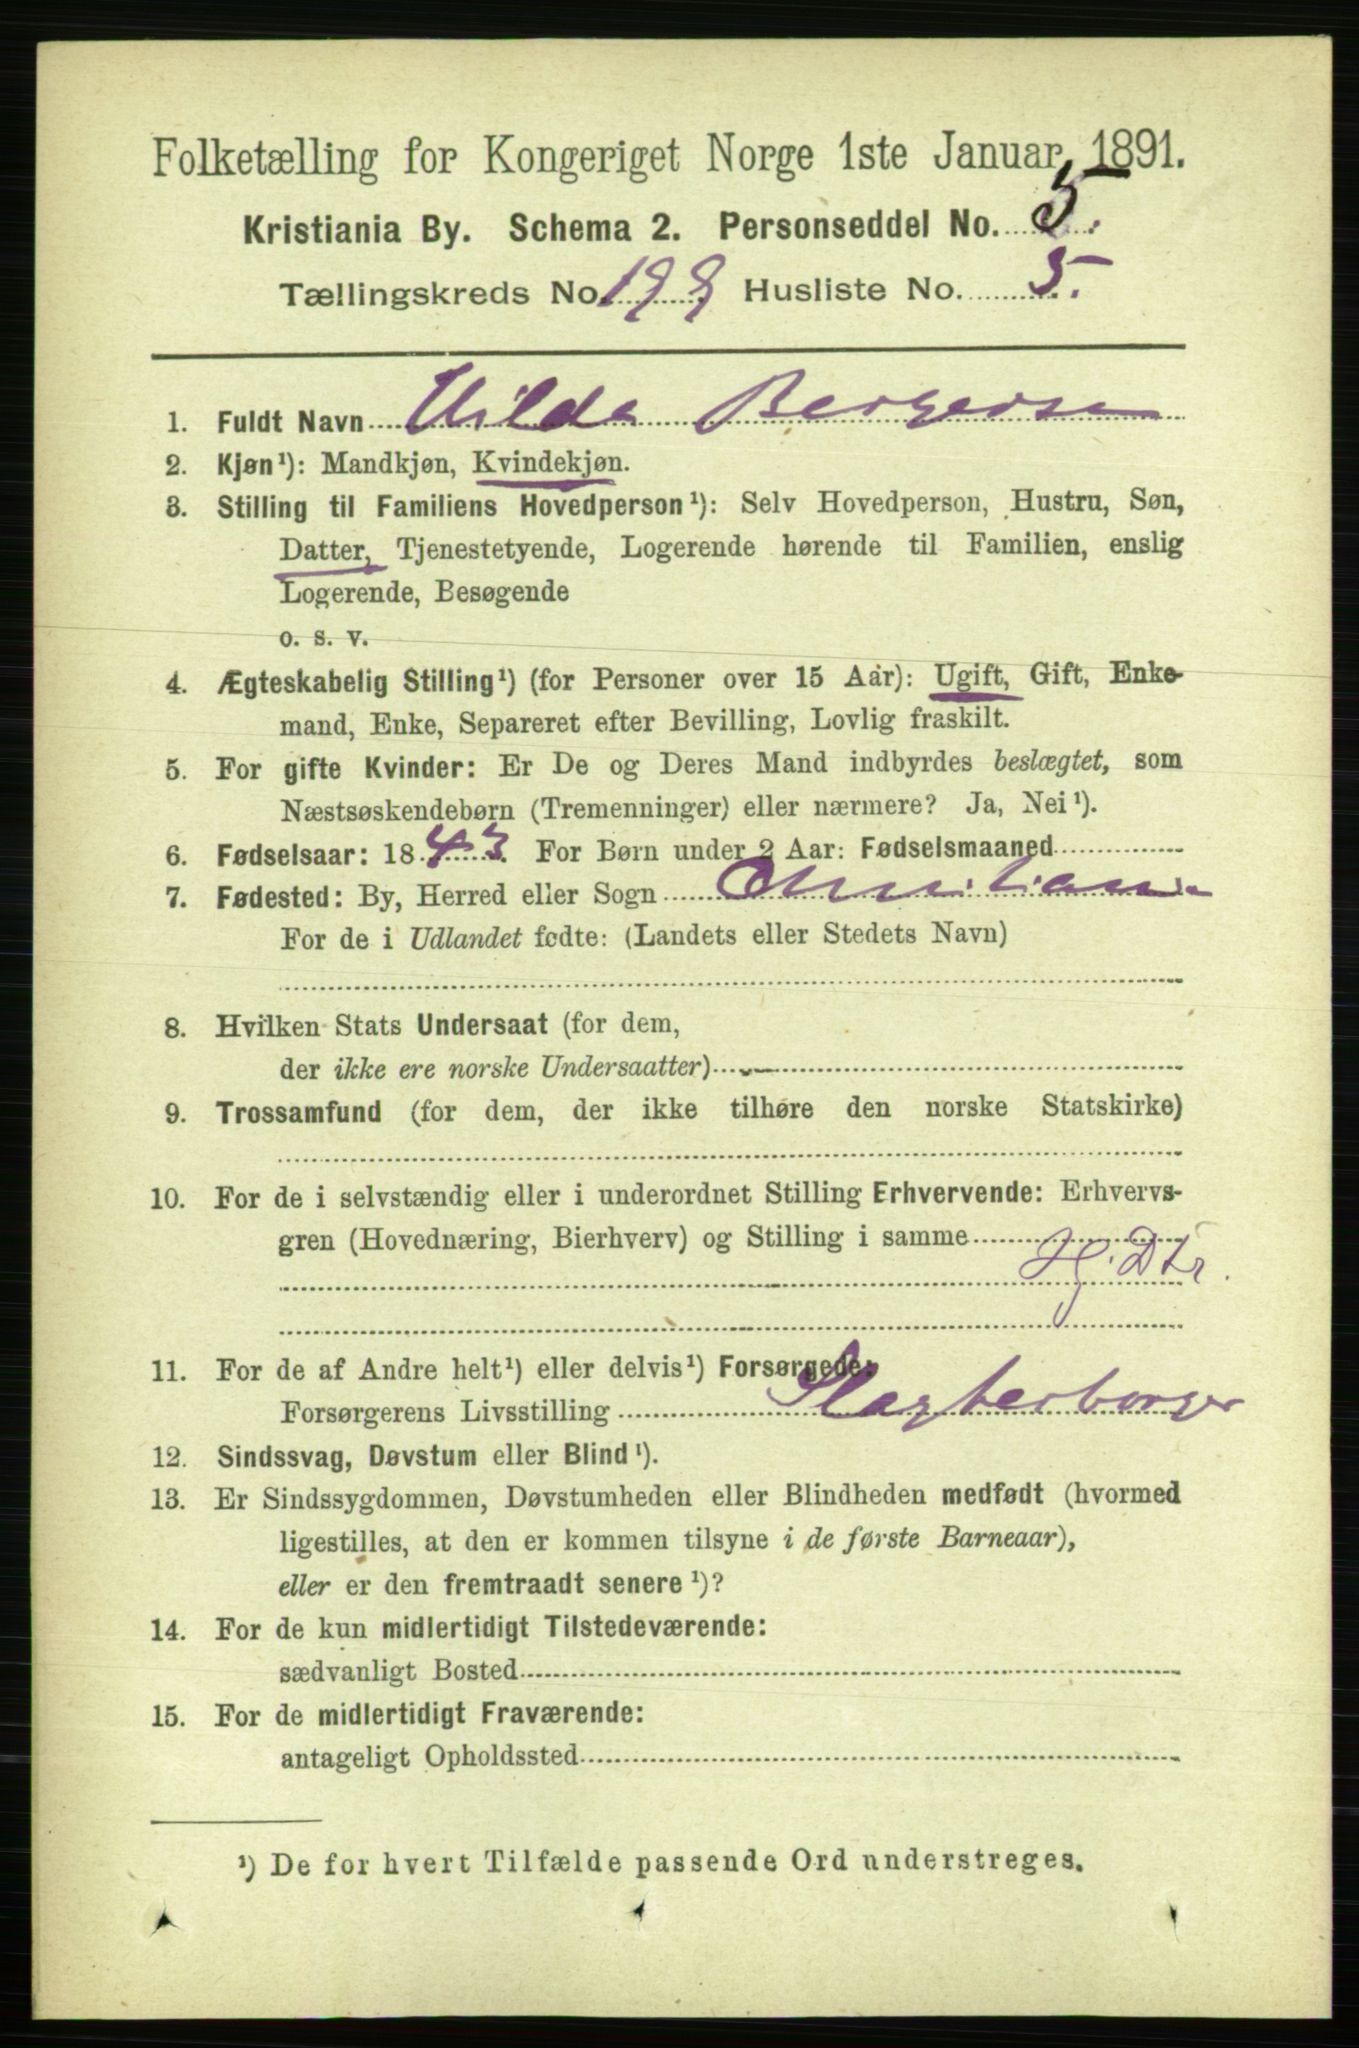 Folketælling for Kongeriget Norge 1ste Januar 1891.
Kristiania By. Schema 2. Personseddel No. 5.
Tællingskreds No. 199. Husliste No. 5.
1. Fuldt Navn Hilda Bergersen
2. Kjøn¹): Mandkjøn, Kvindekjøn.
3. Stilling til Familiens Hovedperson¹): Selv Hovedperson, Hustru, Søn,
Datter, Tjenestetyende, Logerende hørende til Familien, enslig
Logerende, Besøgende
o. s. v.
4. Ægteskabelig Stilling¹) (for Personer over 15 Aar): Ugift, Gift, Enke-
mand, Enke, Separeret efter Bevilling, Lovlig fraskilt.
5. For gifte Kvinder: Er De og Deres Mand indbyrdes beslægtet, som
Næstsøskendebørn (Tremenninger) eller nærmere? Ja, Nei¹).
6. Fødselsaar: 1843. For Børn under 2 Aar: Fødselsmaaned
7. Fødested: By, Herred eller Sogn Christiania
For de i Udlandet fødte: (Landets eller Stedets Navn)
8. Hvilken Stats Undersaat (for dem,
der ikke ere norske Undersaatter)
9. Trossamfund (for dem, der ikke tilhøre den norske Statskirke)
10. For de i selvstændig eller i underordnet Stilling Erhvervende: Erhvervs-
gren (Hovednæring, Bierhverv) og Stilling i samme
Hj. Dtr.
11. For de af Andre helt¹) eller delvis¹) Forsørgede:
Forsørgerens Livsstilling Slagterborger
12. Sindssvag, Døvstum eller Blind¹).
13. Er Sindssygdommen, Døvstumheden eller Blindheden medfødt (hvormed
ligestilles, at den er kommen tilsyne i de første Barneaar),
eller er den fremtraadt senere¹)?
14. For de kun midlertidigt Tilstedeværende:
sædvanligt Bosted
15. For de midlertidigt Fraværende:
antageligt Opholdssted
¹) De for hvert Tilfælde passende Ord understreges.